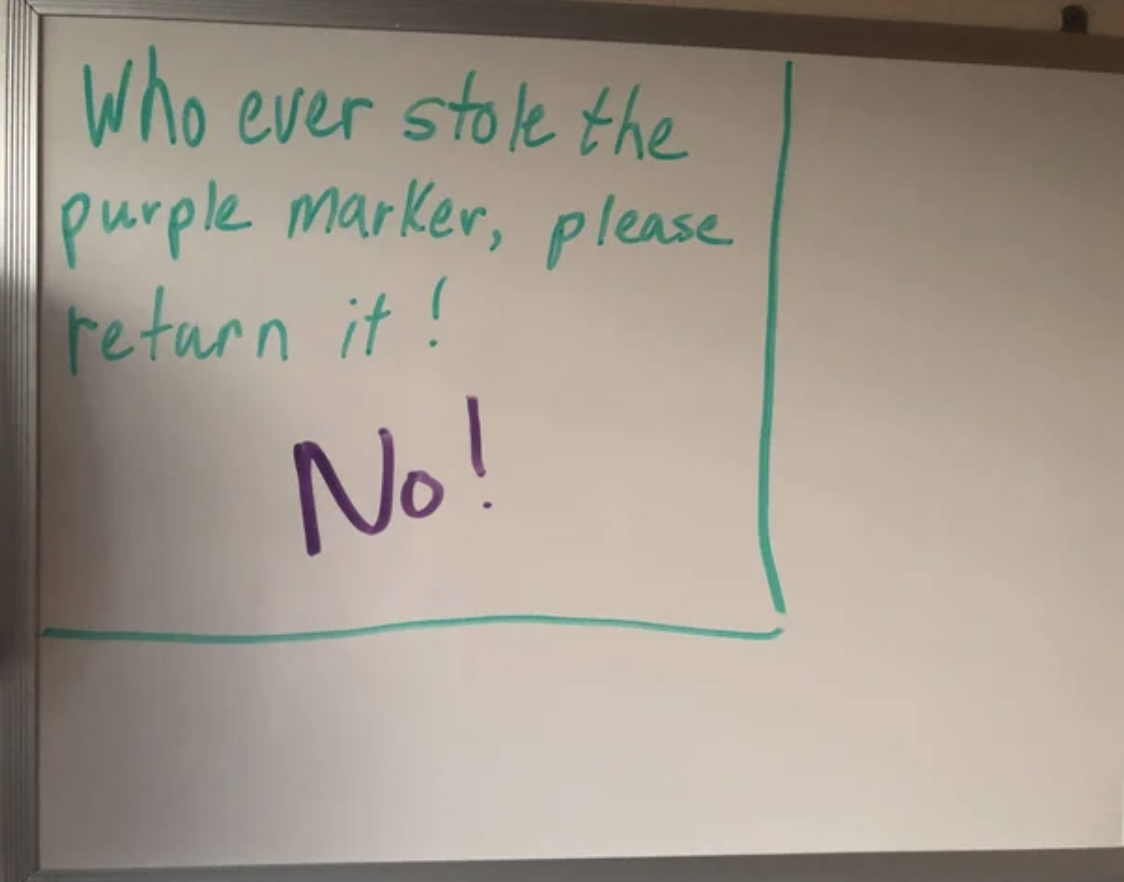 Who ever stole the
purple marker, please
return it!
No!